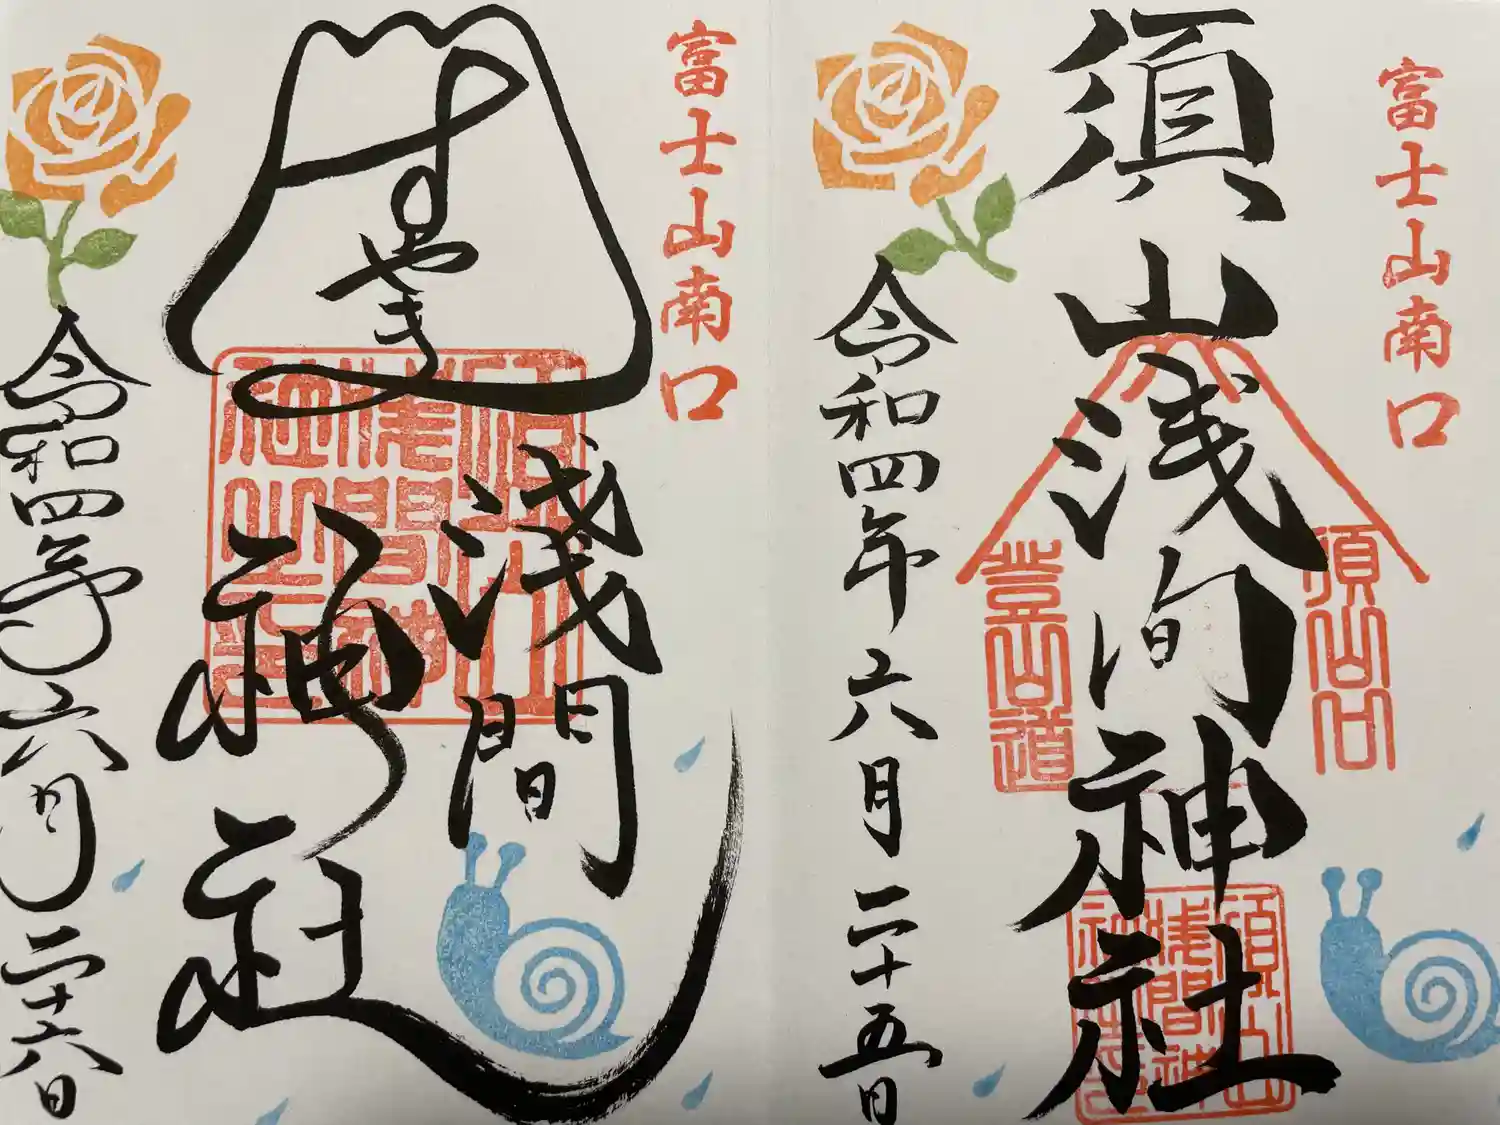 富士山南口
須山浅间神社
須山口
登山道
須山
浅間神
社
令和四年六月二十五日
富士山南口
すやま
浅間
神社
須山
浅間神
社之印
令和四年六月二十六日